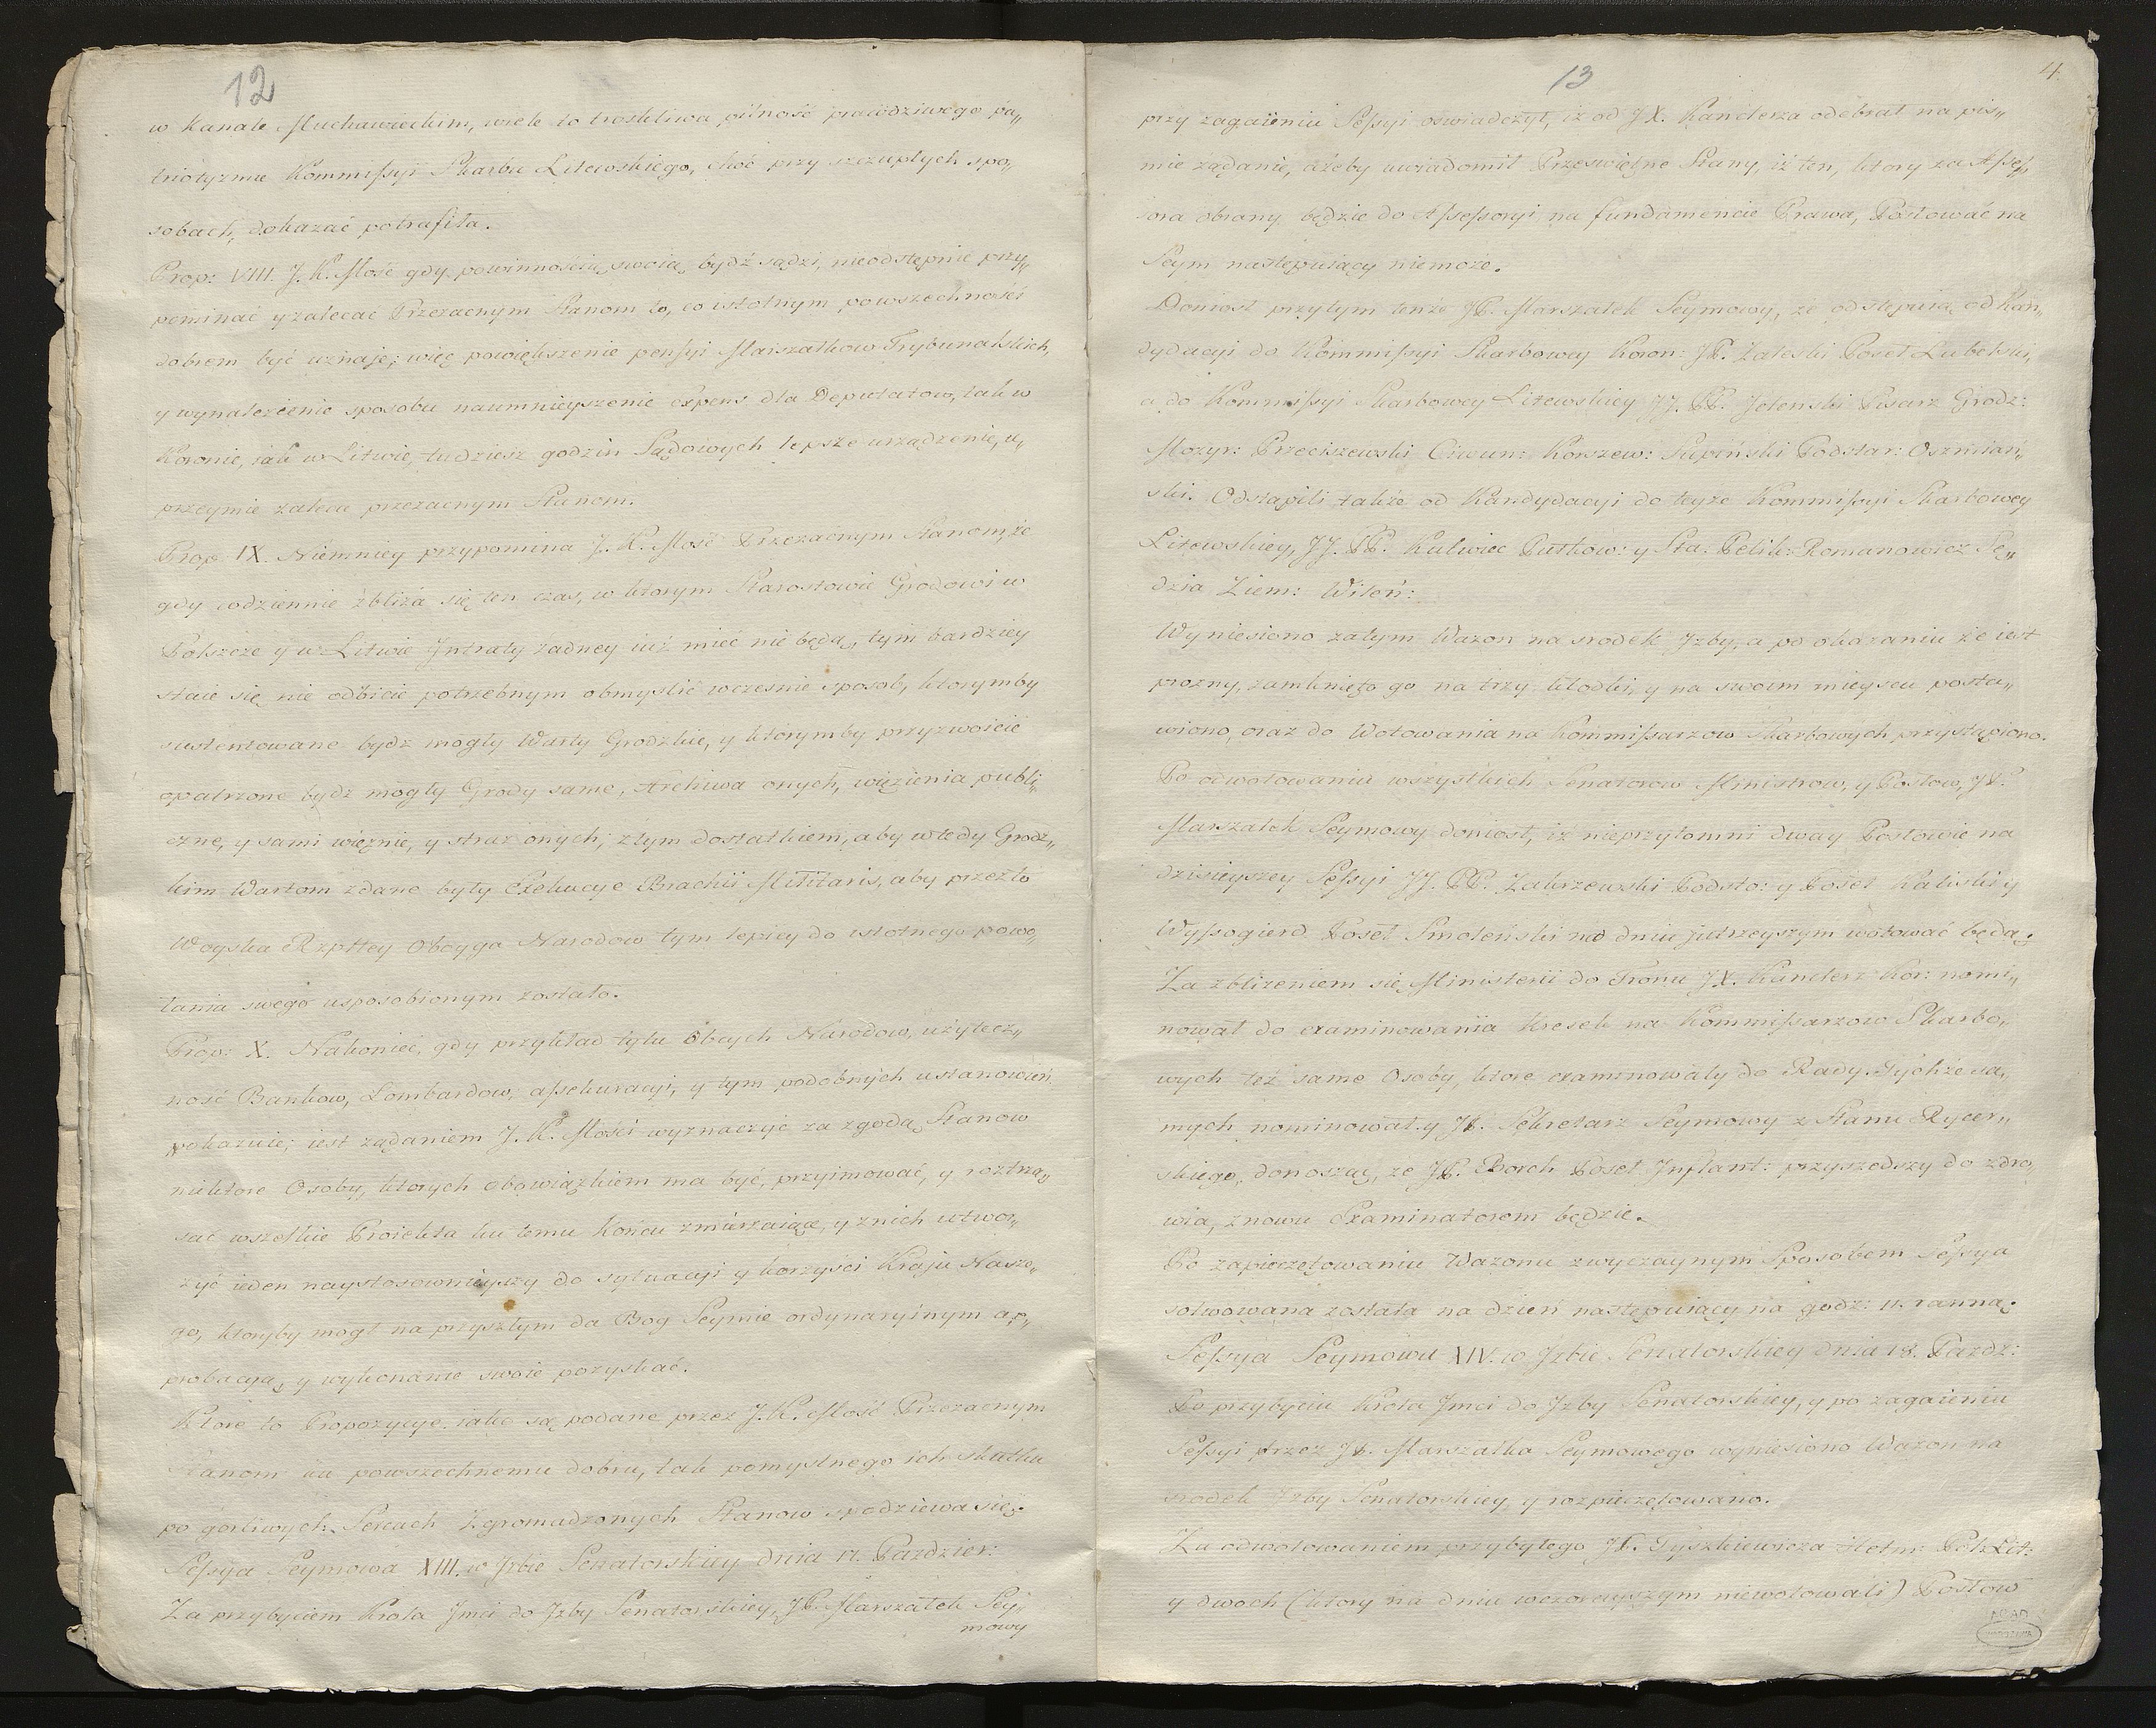 12
w Kanale Muchawieckim, wiele to troskliwa pilność prawdziwego pa„
triotyzmu Kommissyi Skarbu Litewskiego, choć przy szczupłych spo„
sobach, dokazać potrafiła.
Prop: VIII. J. K. Mość gdy powinnością swoią bydź sądzi, nieodstępnie przy„
pominać y zalecać Przezacnym Stanom to, co istotnym powszechności
dobrem być uznaje; więc powiększenie pensyi Marszałkow Trybunalskich,
y wynalezienie sposobu na umnieyszenie expens dla Deputatow, tak w
Koronie, iak w Litwie, tudziesz godzin Sądowych lepsze urządzenie, u„
przeymie zaleca przezacnym Stanom.
Prop IX. Niemniey przypomina J. K. Mość Przezacnym Stanom, że
gdy codziennie zbliża się ten czas, w ktorym Starostowie Grodowi w
Polszcze y w Litwie Intraty żadney iuż mieć nie będą, tym bardziey
staie się nie odbicie potrzebnym obmyslić wczesnie sposob, ktorymby
sustentowane bydz mogły Warty Grodzkie, y ktorymby przyzwoicie
opatrzone bydź mogły Grody same, Archiwa onych, więzienia publi„
czne, y sami więznie, y straż onych; z tym dostatkiem, aby wtedy Grodz„
kim Wartom zdane były Exekucye Brachii Militaris, aby przezto
Woyska Rzpltey Oboyga Narodow tym lepiey do istotnego powo„
łania swego usposobionym zostało.
Prop: X. Nakoniec, gdy przykład tylu Obcych Narodow, użytecz„
ność Bankow, Lombardow, assekuracyi, y tym podobnych ustanowień
pokazuie; iest żądaniem J. K. Mości wyznaczyć za zgodą Stanow
niektore Osoby, ktorych obowiązkiem ma być, przyimować, y roztrzą„
sać wszelkie Proiekta ku temu Końcu zmierzaiące, y z nich utwor„
zyć ieden naystosownieyszy do sytuacyi y korzyści Kraju Nasze„
go, ktoryby mogł na przyszłym da Bog Seymie ordynaryinym ap„
probacyą, y wykonanie swoie pozyskać.
Ktore to Propozycye iako są podane przez J. K. Mość Przezacnym
Stanom ku powszechnemu dobru, tak pomyslnego ich skutku
po gorliwych Sercach Zgromadzonych Stanow spodziewa się.
Sessya Seymowa XIII. w Izbie Senatorskiey dnia 17. Pazdzier:
Za przybyciem Krola Jmci do Izby Senatorskiey, JP. Marszałek Sey„
mowy
13
4.
przy zagaieniu Sessyi oswiadczył, iż od JX. Kanclerza odebrał na pis„
mie żądanie, ażeby uwiadomił Przeswietne Stany, iż ten, ktory za Asses„
sora obrany będzie do Assessoryi na fundamencie Prawa, Posłować na
Seym następuiący niemoże.
Doniosł przytym tenże JP. Marszałek Seymowy, że odstępuią od Kan„
dydacyi do Kommissyi Skarbowey Koron: JP. Zaleski Poseł Lubelski,
a do Kommissyi Skarbowey Litewskiey JJ. PP. Jelenski Pisarz Grodz:
Mozyr: Przeciszewski Ciwun: Korszew: Supiński Podstar: Oszmiań„
ski. Odstąpili także od Kandydacyi do teyże Kommissyi Skarbowey
Litewskiey, JJ. PP. Kulwiec Pułkow: y Sta. Pelik: Romanowicz Sę„
dzia Ziem: Wileń:
Wyniesiono zatym Wazon na srodek Izby, a po okazaniu że iest
prozny, zamknięto go na trzy kłodki, y na swoim mieyscu posta„
wiono, oraz do Wotowania na Kommissarzow Skarbowych przystąpiono.
Po odwotowaniu wszystkich Senatorow Ministrow, y Posłow, JP.
Marszałek Seymowy doniosł, iż nieprzytomni dway Posłowie na
dzisieyszey Sessyi JJ. PP. Zakrzewski Podsto: y Poseł Kaliski y
Wyssogierd Poseł Smoleński na dniu jutrzeyszym wotować będą.
Za zbliżeniem się Ministerii do Tronu JX. Kanclerz Kor: nomi„
nował do examinowania Kresek na Kommissarzow Skarbo„
wych też same Osoby, ktore examinowały do Rady. Tychże sa„
mych nominował y JP. Sekretarz Seymowy z Stanu Rycer„
skiego, donosząc, że JP. Borch Poseł Inflant: przyszedszy do zdro„
wia, znowu Examinatorem będzie.
Po zapieczętowaniu Wazonu zwyczaynym Sposobem Sessya
solwowana została na dzień następuiący na godz: 11. ranną.
Sessya Seymowa XIV. w Izbie Senatorskiey dnia 18. Pazdz:
Po przybyciu Krola Jmci do Izby Senatorskiey, y po zagaieniu
Sessyi przez JP. Marszałka Seymowego wyniesiono Wazon na
srodek Izby Senatorskiey, y rozpieczętowano.
Za odwotowaniem przybyłego JP. Tyszkiewicza Hetm: Pol: Lit:
y dwoch (ktory na dniu wczorayszym niewotowali) Posłow